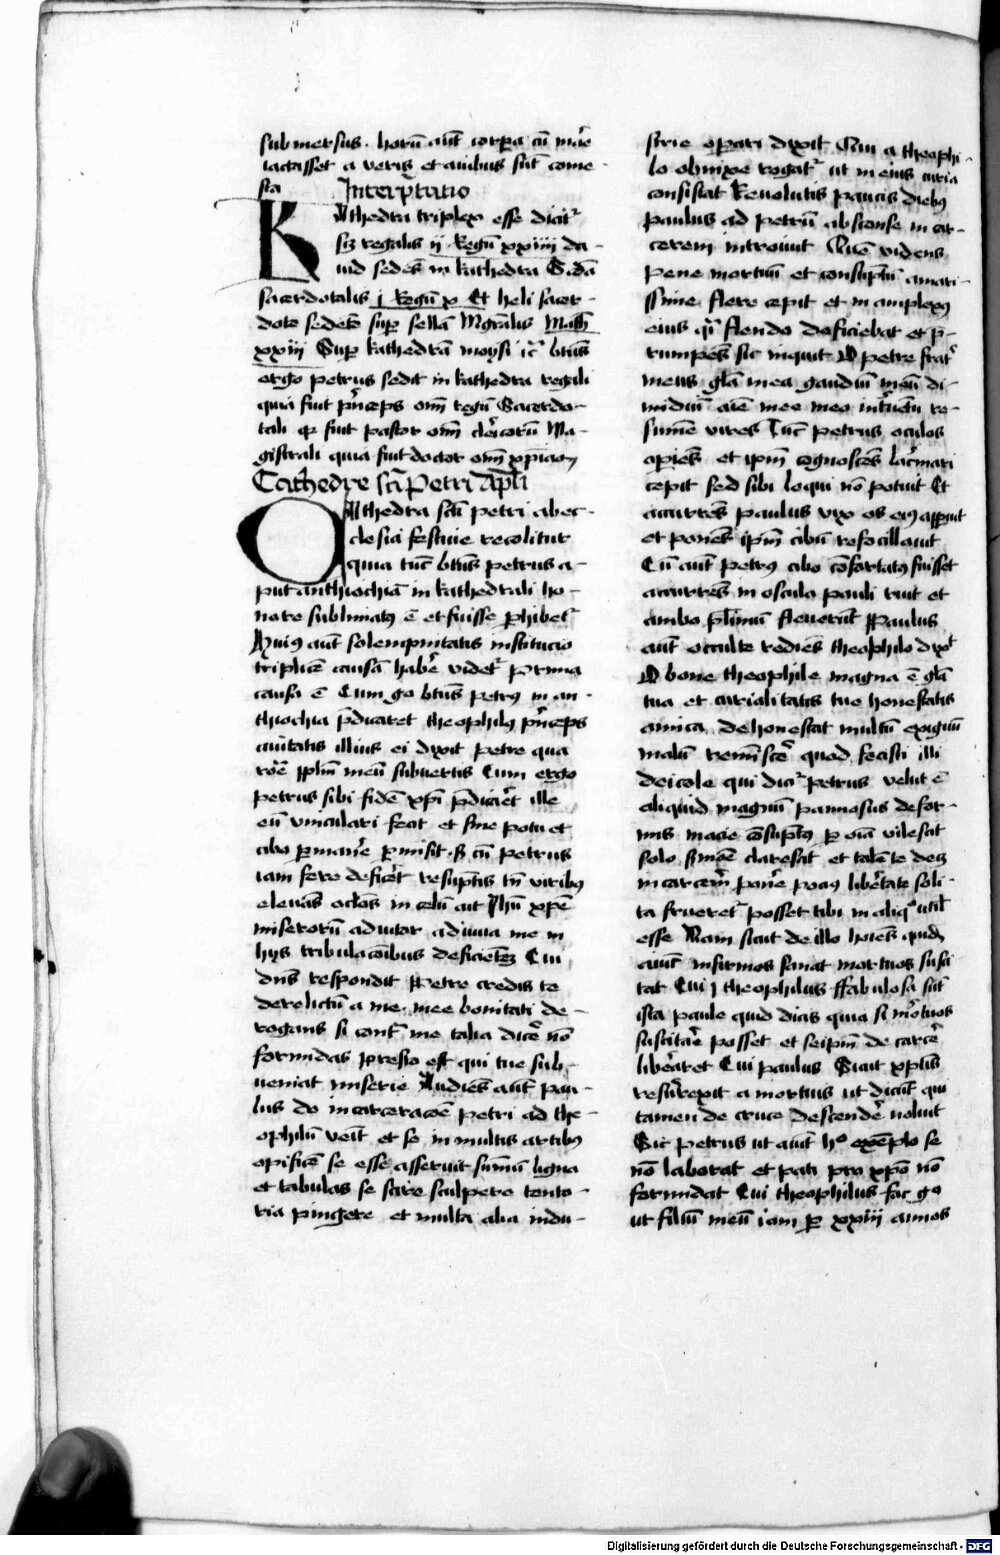 submersus. horū aūt corpa cū mare
iactasset a veris et avibus sūt come-
sta Interp̄tatio
Kathedra triplex esse dicit᷑
sꝫ regalis ij Regū xxiiii da-
uid sedēs in kathedra Scdā
sacerdotalis j Regū x Et heli sacer-
dote sedēte sup sellā Mgr̄alis Math̄
xxiij Sup kathedrā moysi ꝛc̄ bt̄us
ergo petrus sedit in kathedra regali
quia fuit p̄nceps om̄ regū Sacerdo-
tali qꝫ fuit pastor om̄ cleīcorū Ma-
gistrali quia fuit doctor om̄ xp̄ianoꝝ
Cathedre scī Petri Apl̄i
Cathedra scī petri ab ec-
clesia festiue recolitur
quia tūc bt̄us petrus a-
put anthiochiā in kathedrali ho-
nore sublimatꝫ ē et fuisse phibet᷑
Huius aūt solempnitatis institucio
triplicē causā habe᷑ videt᷑ Prima
causa ē Cum g̊ bt̄us petrꝫ in an-
thiochia p̄dicaret theophilꝫ p̄nceps
ciuitatis illius ei dixit petre qua
rōe ꝓplm̄ meū subuertis Cum ergo
petrus sibi fidē xp̄i p̄dicaēt ille
eū vinculari fecit et sine potu et
cibo ꝑmane᷑ ꝑmisit. S cū petrus
iam fere deficēt resūptis tn̄ viribꝫ
eleuās oclos in celū ait Jhū xp̄e
miserorū adiutor adiuua me in
hijs tribulacōibus deficiētē Cui
dn̄s respondit Petre credis te
derelictū a me. mee bonitati de-
rogans si cont᷑ me talia dice᷑ nō
formidas presto est qui tue sub-
ueniat miserie Audiēs aūt pau-
lus do incarceracōe petri ad the-
ophilū veīt et se in multis artibꝫ
opificē se esse asseruit sūmū ligna
et tabulas se scire sculpere tento-
ria pingere et multa alia indu-
strie opari dixit Cui a theophi-
lo obnixe rogat᷑ ut in eius curia
consistat Reuolutis paucis diebꝫ
paulus ad petrū absconse in car-
cerem introiuit Quē videns
pene mortuū et consūptū amari-
ssime flere cepit et in amplexꝫ
eius q̄ flendo deficiebat et p-
rumpēs sic inquit O petre frat᷑
meus gl̄a mea gaudiū meū di-
midiū aīe mee meo introitu re-
sume vires Tūc petrus oculos
apiēs et ip̄m cognoscēs lac̄mari
cepit sed sibi loqui nō potuit Et
accurrēs paulus vix os eiꝫ apuit
et ponēs ip̄m cibū refocillauit
Cū aūt petrꝫ cibo cōfortatꝫ fuisset
accurrēs in oscula pauli ruit et
ambo pl̄imū fleuerūt Paulus
aūt occulte rediēs theophilo dix̄t
O bone theophile magna ē gl̄a
tua et curialitatis tue honestatis
amica dehonestat multū exiguū
malū reminisce᷑ quod fecisti illi
deicole qui dici᷑ petrus velut ē
aliquid magnū pannosus defor-
mis macie cōsūptꝫ ꝑ oīa vilescit
solo sermōe clarescit et talē te decꝫ
in carcem pone᷑ pociꝫ libertate soli-
ta frueret᷑ posset tibi in aliq° util᷑
esse Nam sicut de illo hoīes quidā
aiūt infirmos sanat mortuos susci-
tat Cui theophilus Fabulosa sūt
ista paule quid dicis quia si mortuos
suscitare posset et seipm̄ de carce᷑
liberaret Cui paulus Sicut xp̄us
resūrexit a mortuis ut dicūt qui
tamen de cruce descende᷑ noluit
Sic petrus ut aiūt h° exēplo se
nō laborat et pati pro xp̄o nō
formidat Cui theophilus fac g°
ut filiū meū iam ꝑ xxiiij annos
Digitalisierung gefördert durch die Deutsche Forschungsgemeinschaft - DFG